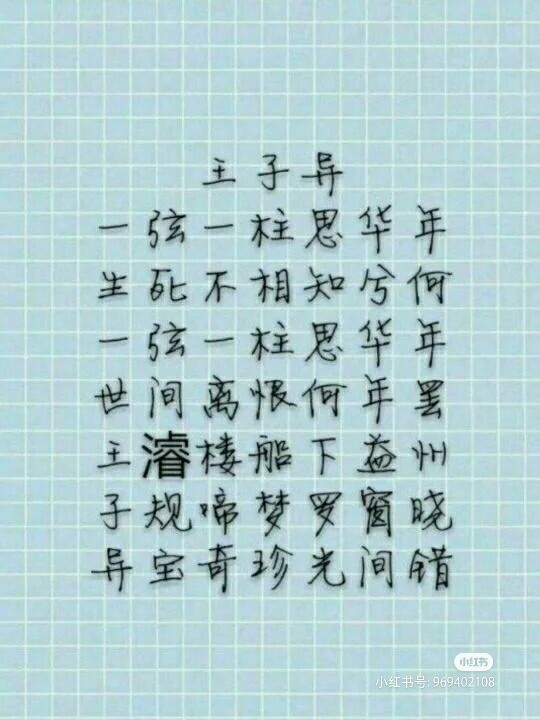 王子异
一弦一柱思华年
生死不相知兮何
一弦一柱思华年
世间离恨何年罢
王濬楼船下益州
子规啼梦罗窗晓
异宝奇珍光间错
小红书
小红书号: 969402108